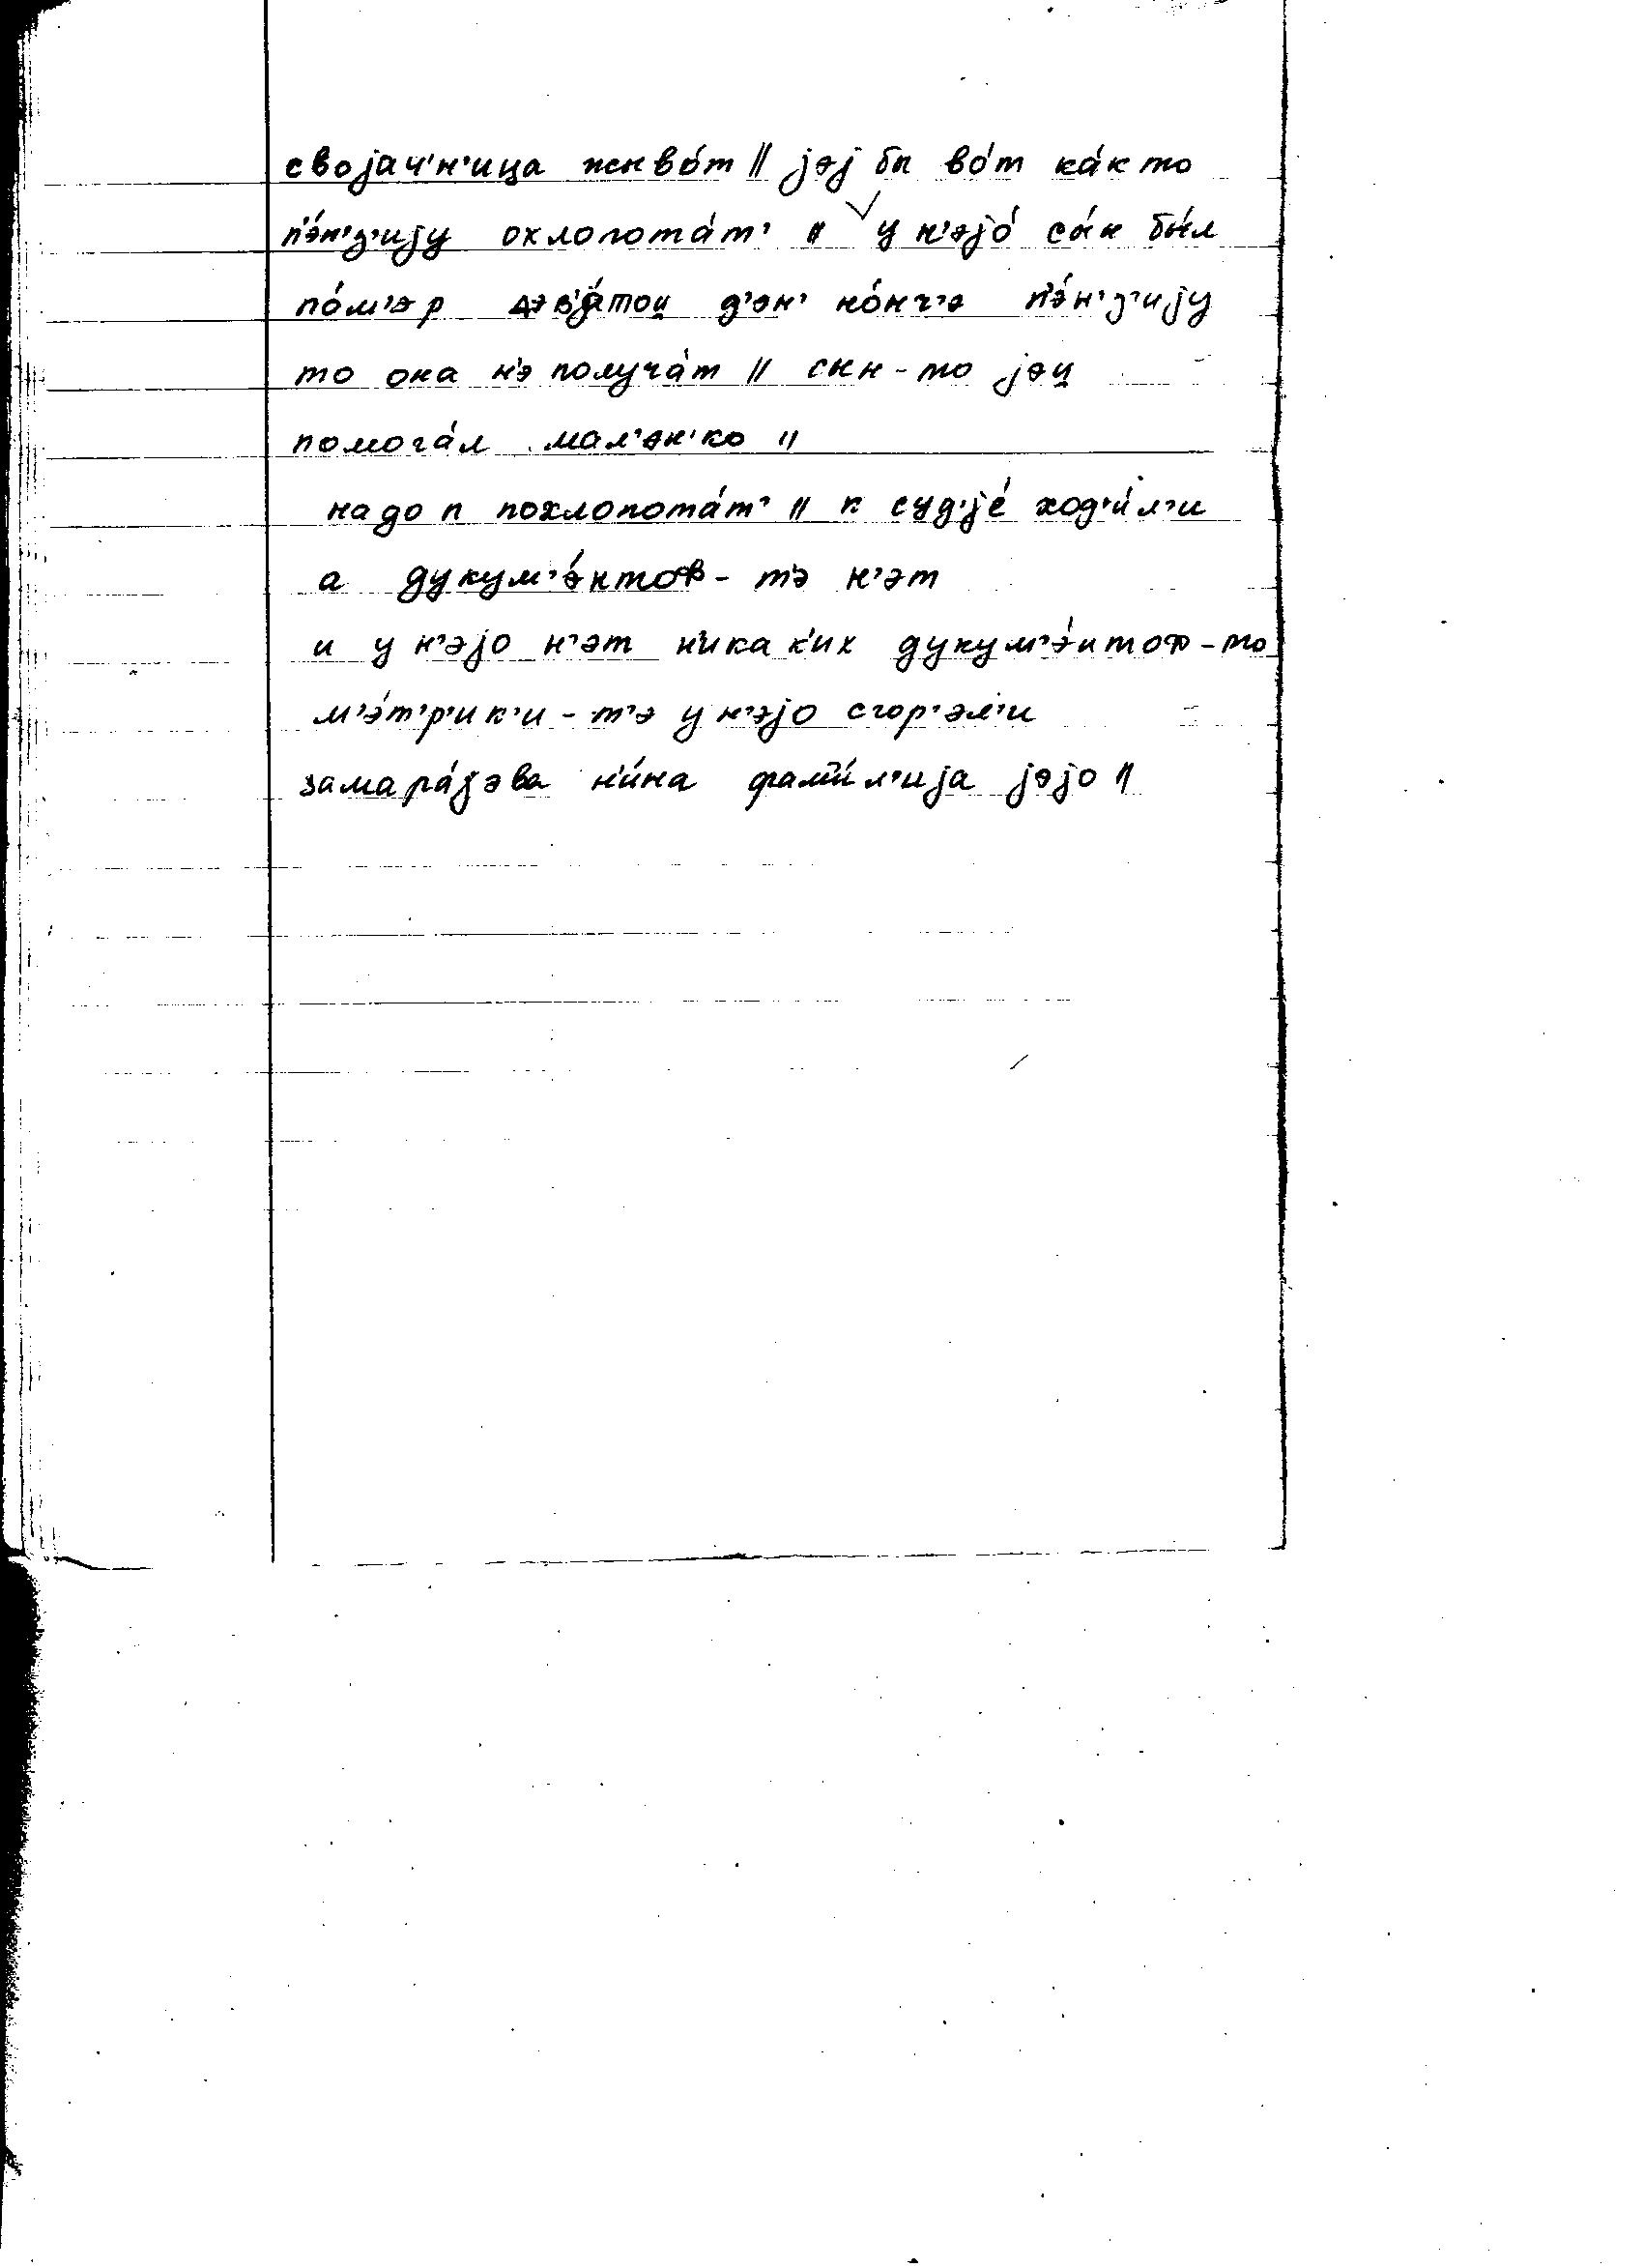 својач'н'ица живо́т || јэј бы во́т ка́к то
п'э́н'з'ију охлопота́т' || у н'эјо́ сы́н бы́л
по́м'эр дэв'а́тои̯ д'эн' но́нч'э п'э́н'з'ију
то она н'э получа́т || сын-то јэи̯
помога́л мал'эн'ко ||
надо п похлопота́т' || к суд'је́ ход'и́л'и
а дукум'э́нтоф-т'э н'эт
и у н'эјо н'эт н'икак'их дукум'э́нтоф-то
м'э́т'р'ик'и-т'э у н'эјо сгор'эл'и
замара́јэва н'и́на фам'и́л'ија јэјо ||